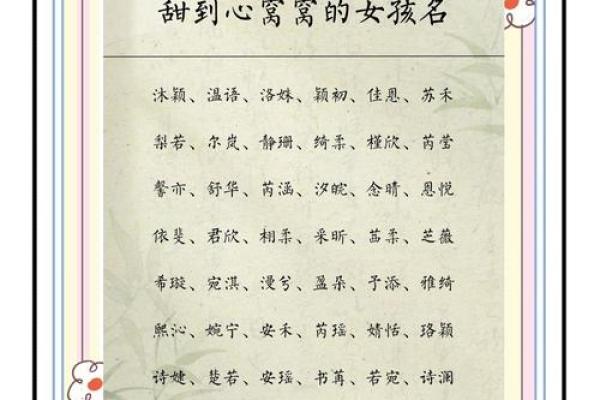 甜到心窝窝的女孩名
沐颖、温语、洛姝、颖初、佳恩、苏禾
梨若、尔岚、静珊、绮柔、槿欣、芮莹
馨亦、舒华、芮涵、汐皖、念晴、恩悦
依斐、君欣、栩柔、采昕、菡柔、芝薇
希璇、宛淇、漫兮、盈朵、予添、雅绮
熙沁、婉宁、安禾、芮瑶、婧恬、珞颖
诗婕、楚若、安瑶、书苒、若宛、诗澜